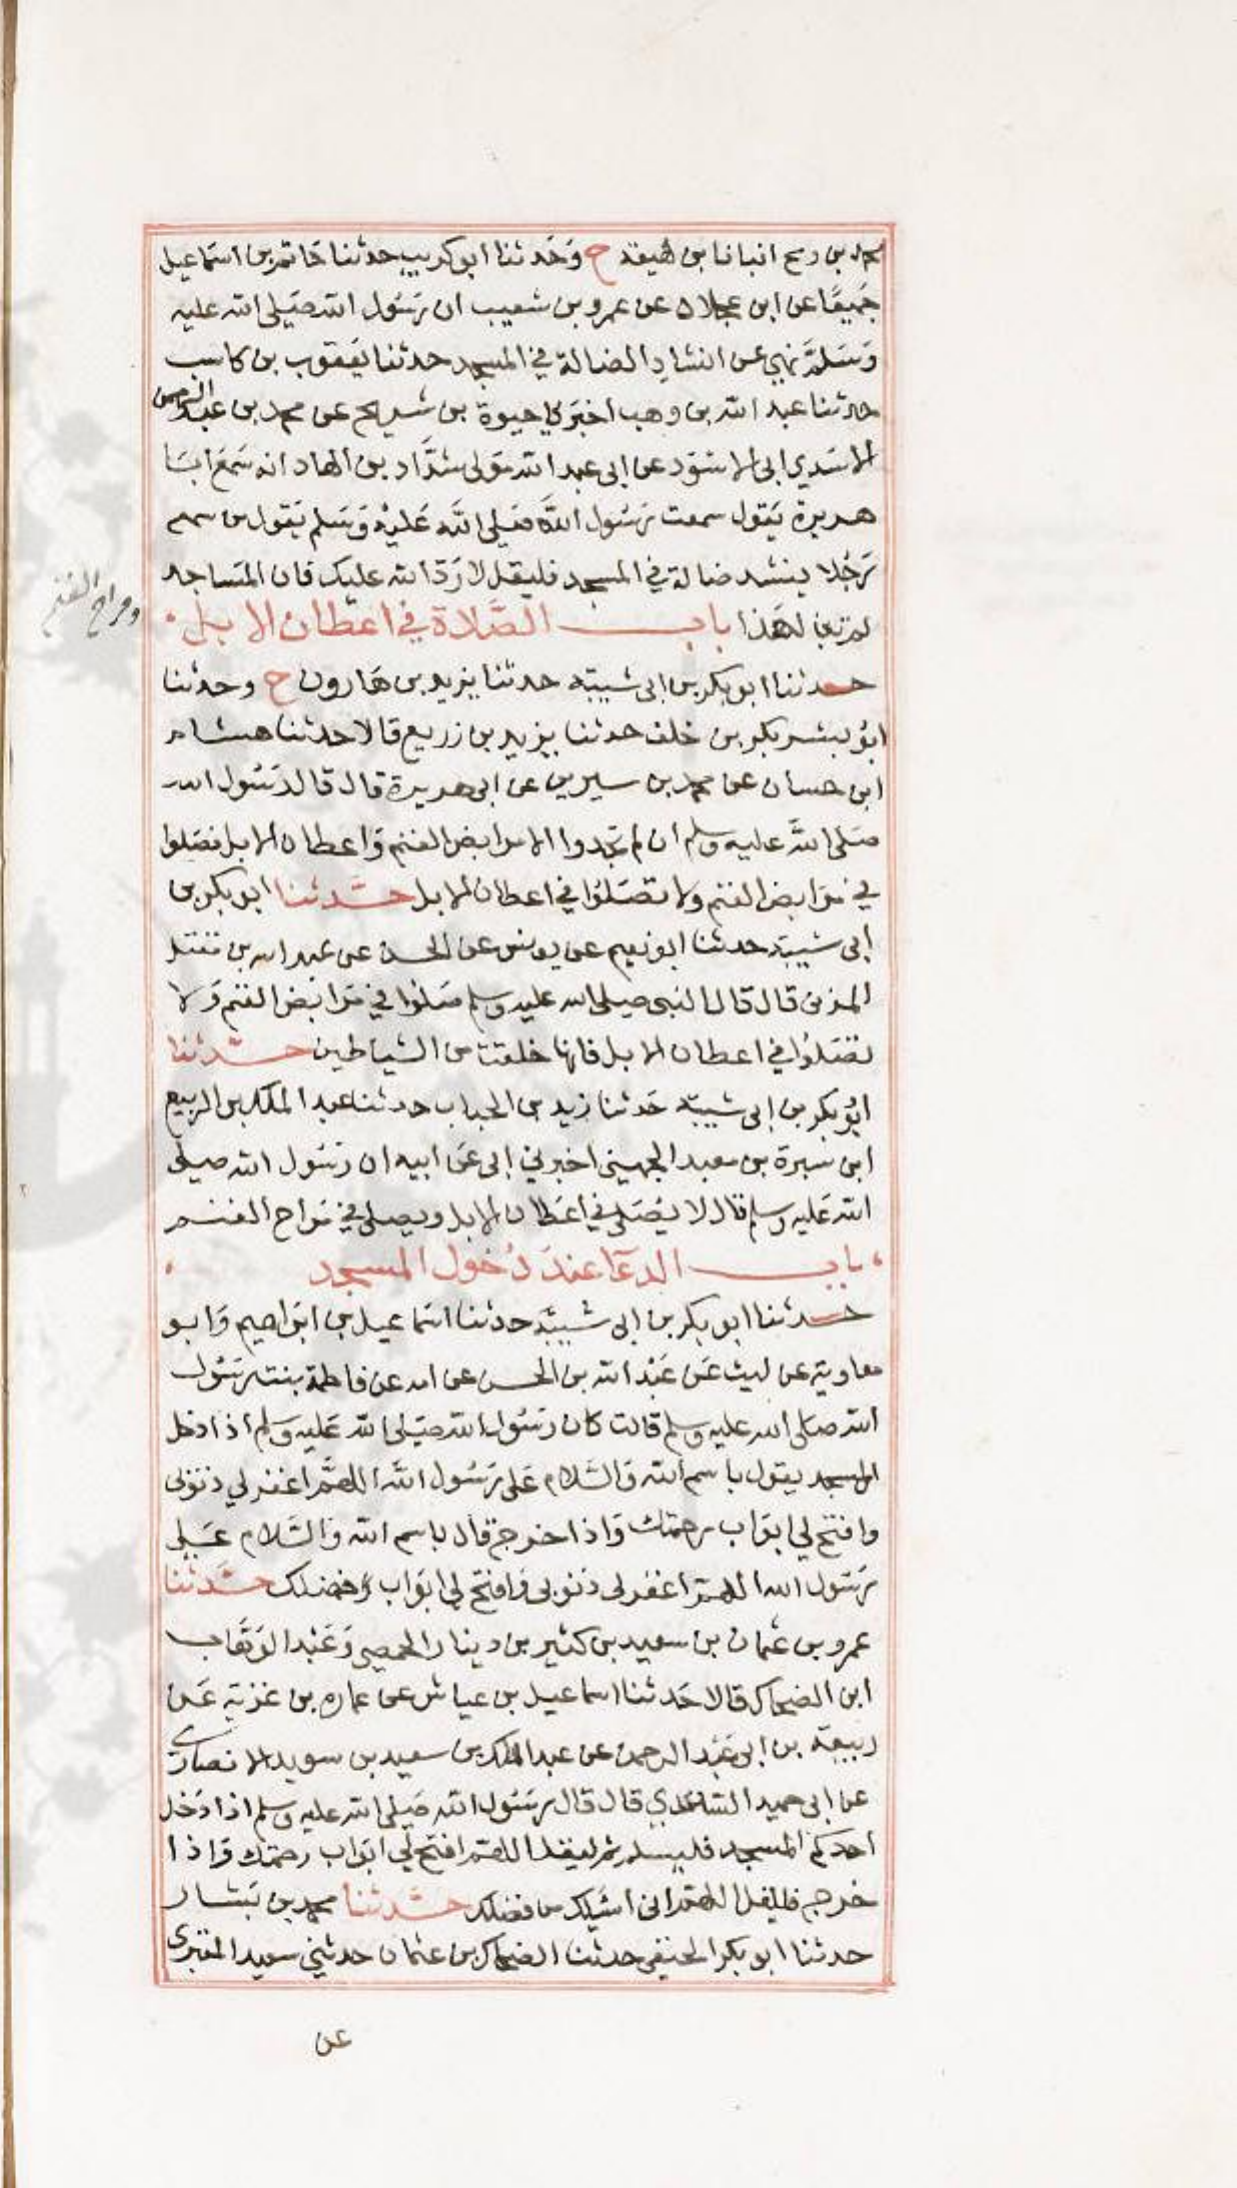 محمد بن رمح انبانا بن لهيعة ح وَحَدثنا ابو كريب حدثنا حَاتم بن اسَماعيل
جَميعًا عن ابن عجلان عن عمرو بن شعيب ان رَسُول الله صَلى الله عليه
وَسَلمَّ نهي عن انشاد الضالة في المسجد حدثنا يَعقوب بن كاسب
حدثنا عبد الله بن وهب اخبَرني حيوة بن شريح عن محمد بن عبد الرحمن
الاسَدي ابي الاسوَد عن ابي عبد الله مَولى شدَّاد بن الهاد انه سَمعَ ابَا
هريرة يَقول سمعت رَسُول اللَّه صَلى اللَّه عَليْه وَسَلم يَقول من سمع
رَجُلا ينشد ضالة في المسجد فليقل لا رَدَّ الله عليك فان المسَاجد
لم تبن لهَذا باب الصَّلاة في اعطان الابل
ومراح الغنم
حدثنا ابو بكر بن ابي شيبَة حدثنا يزيد بن هَارون ح وحدثنا
ابوُ بشر بكر بن خلف حدثنا يزيد بن زريع قالا حدثنا هشام
ابن حسان عن محمد بن سيرين عن ابي هريرة قال قال رَسُول الله
صَلى اللَّه عليه وسلم ان لم تجدوا الا مرابض الغنم وَاعطان الابل فصَلوا
في مَرابض الغنم ولا تصَلوُا في اعطان الابل حدَّثنا ابو بكر بن
ابي شيبة حدثنا ابو نعيم عن يونس عن الحسن عن عَبد الله بن مغفل
المزني قال قال النبي صلى الله عليه وسلم صَلوا في مَرابض الغنم وَلا
تصَلوُا في اعطان الابل فانها خلقت من الشياطين حدَّثنا
ابوُ بكر بن ابي شيبَة حَدثنا زيد بن الحباب حدثنا عبد الملك بن الربيع
ابن سبرة بن معبد الجهيني اخبرني ابي عَن ابيه ان رَسُول الله صلى
الله عَليه وسلم قال لا يُصَلى في اعَطان الابل ويصلى في مَراح الغنم
باب الدعَا عندَ دُخول المسجد
حدثنا ابو بكر بن ابي شيبَة حدثنا اسَماعيل بن ابرَاهيم وَابو
معاوية عن ليث عَن عَبْد الله بن الحسن عن امه عن فاطمة بنت رَسُول
الله صلى الله عليه وسلم قالت كان رَسُول الله صَلى الله عَليه وسلم اذا دخل
المسجد يقول باسم الله وَالسَّلام عَلى رَسُول اللَّه اللهمَّ اغفر لي ذنوبي
وافتح لي ابوَاب رحمتك وَاذا خرج قال باسم الله وَالسَّلام عَلى
رَسُول الله اللهمَّ اغفر لي ذنوبي وَافتح لي ابوَاب فضلك حدَّثنا
عمرو بن عثمان بن سعيد بن كثير بن دينار الحمصي وَعَبْد الوَهَّاب
ابن الضحاك قالا حَدثنا اسماعيل بن عياش عن عماره بن غزية عَن
ربيعة بن ابي عَبْد الرحمن عن عبد الملك بن سعيد بن سويد الانصاري
عن ابي حميد السَّاعدي قال قال رَسُول الله صَلى الله عليه وسلم اذا دَخل
احدكم المسجد فليسلم ثم ليقل اللهمّ افتح لي ابوَاب رحمتك وَاذا
خرج فليقل اللهمّ اني اسَئلك من فضلك حدَّثنا محمد بن بَشار
حدثنا ابو بكر الحنفي حدثنا الضحاك بن عثمان حدثني سعيد المقبري
عن